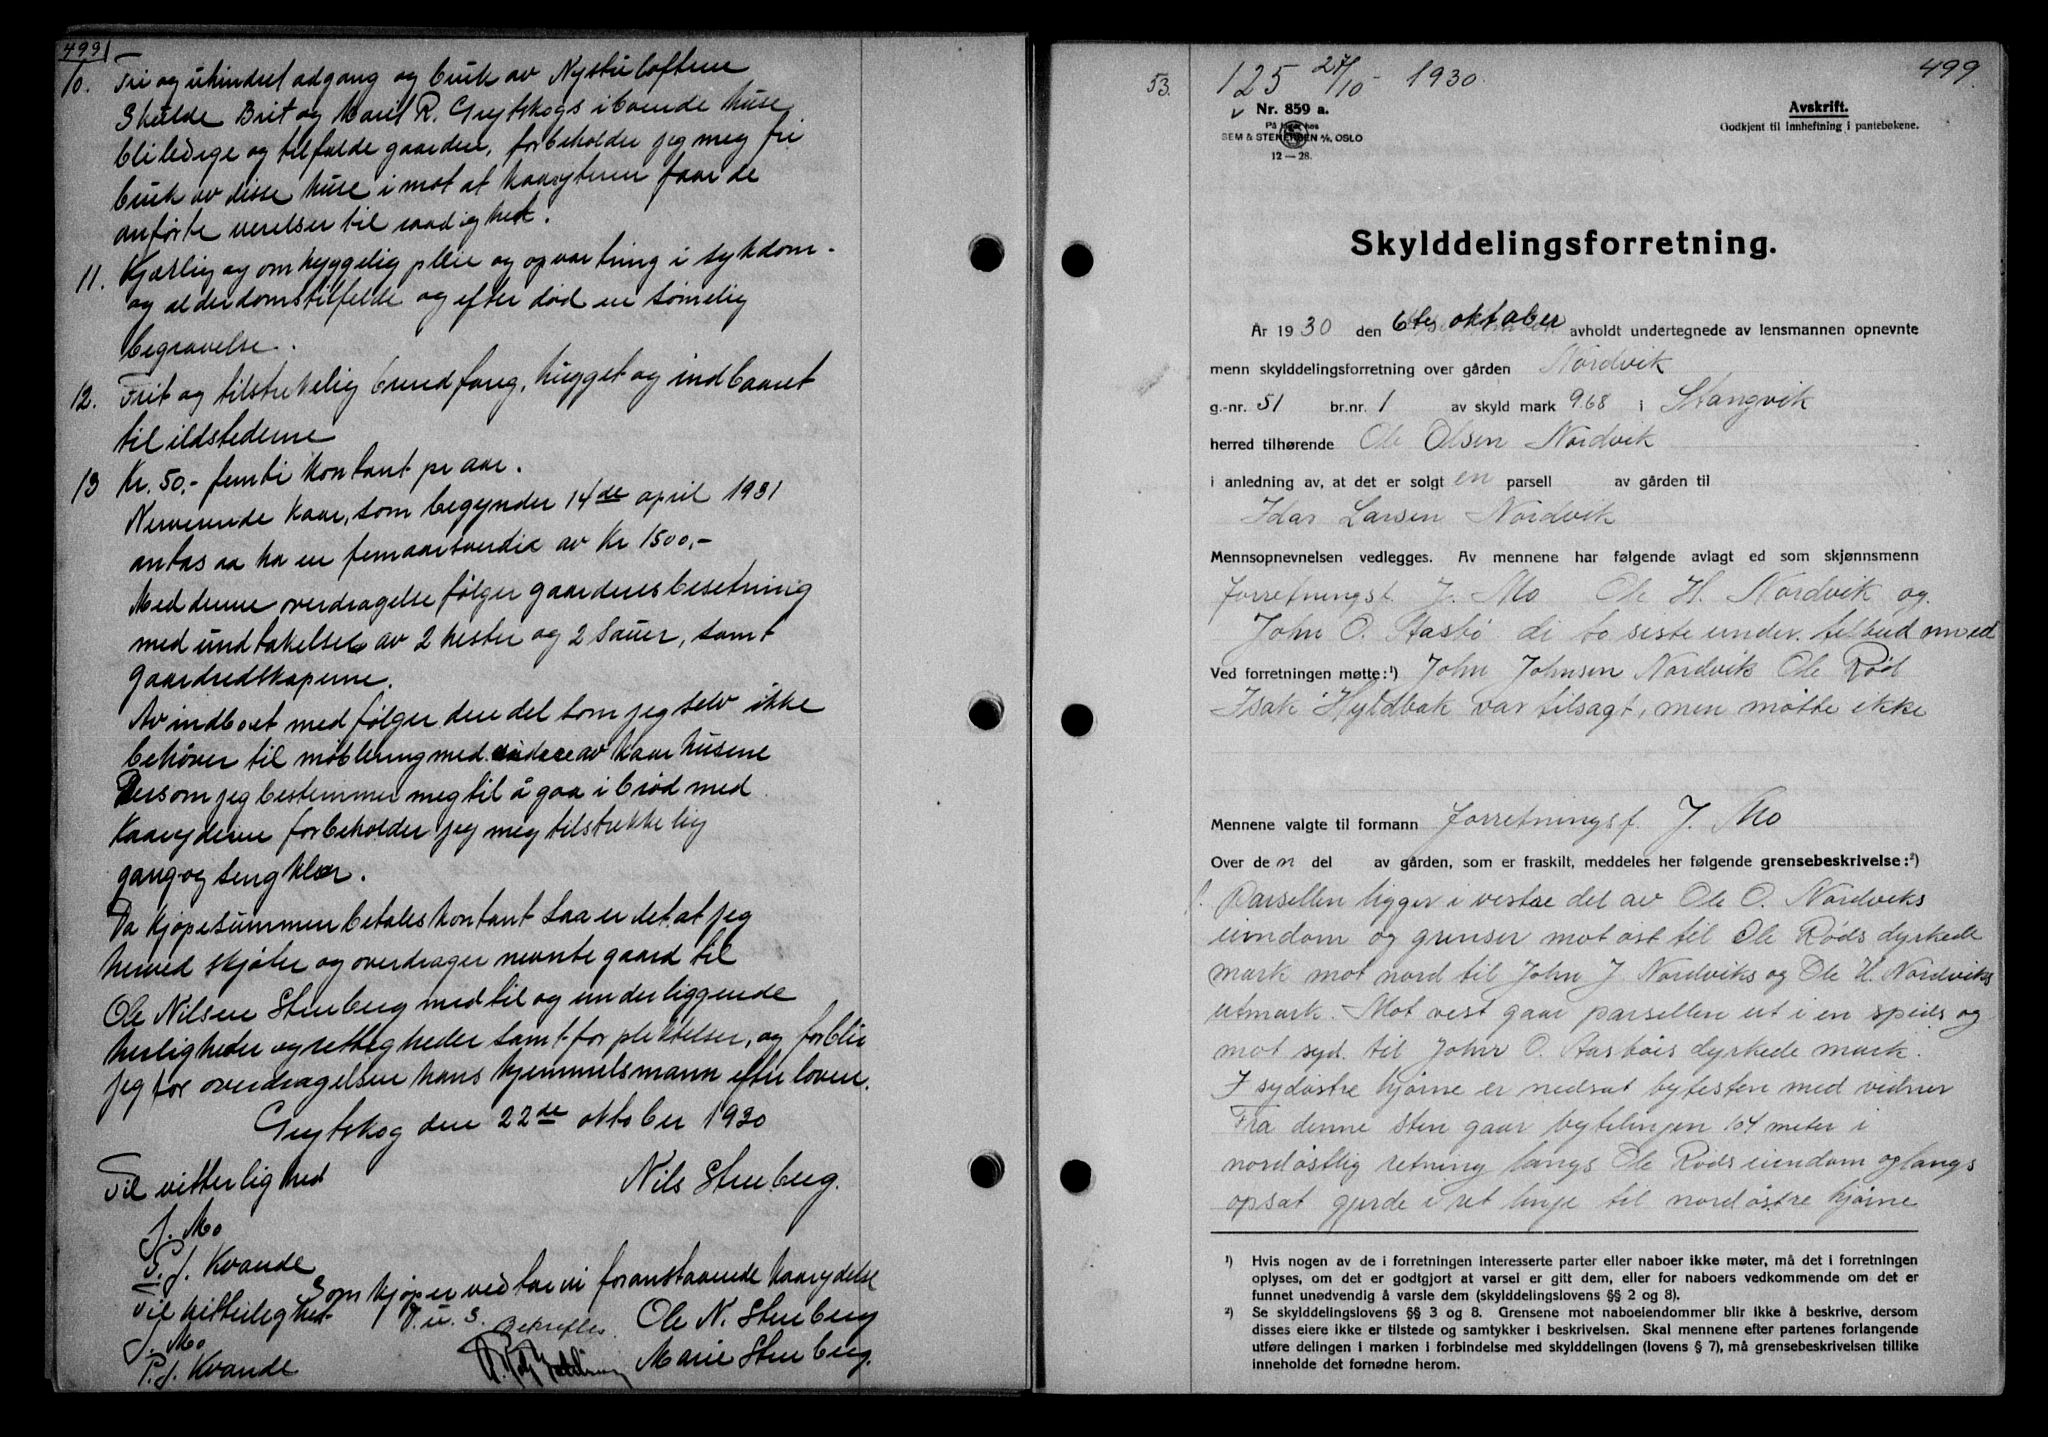 499
10. Fri og uhindret adgang og bruk av Nystuloftene
Skulde Brit og Marit R. Grytskogs iboende huse
bli ledige og tilfalde gaarden, forbeholder jeg meg fri
bruk av disse huse i mot at kaarytere faar de
anførte verelser til raadighet.
11. Kjærlig og omhyggelig pleie og opvartning i sykdom-
og alderdomstilfelde og efter død en sømelig
begravelse.
12. Frit og tilstrekelig brendfang, hugget og indbaaret
til ildstederne
13 Kr. 50,- femti kontant pr aar.
Nerverende kaar, som begynder 14de april 1931
antas aa ha en femaarsverdie av Kr 1500,-
Med denne overdragelse følger gaardens besetning
med undtakelse av 2 hester og 2 sauer, samt
gaardredskaperne.
Av indboet medfølger den del som jeg selv ikke
behøver til møblering med videre av kaarhusene
Dersom jeg bestemmer meg til å gaa i brød med
kaaryderne forbeholder jeg meg tilstrekkelig
gang og sengklær.
Da kjøpesummen betales kontant saa er det at jeg
herved skjøter og overdrager nevnte gaard til
Ole Nilsen Stenberg med til og underliggende
herligheder og rettigheder samt forpliktelser, og forblir
jeg for overdragelsen hans hjemmelsmann efter loven.
Grytskog den 22de oktober 1930
Til vitterlighed Nils Stenberg.
J. Mo
P. J. Kvande
Som kjøper vedtar vi foranstaaende kaarydelse
Til vitterlighet D. u. S. Bekreftes Ole N. Stenberg
J. Mo Marie Stenberg.
P. J. Kvande
53. 125 27/10 - 1930 499.
Nr. 859 a.
På lager hos
SEM & STENERSEN A/S, OSLO
12 — 28.
Avskrift.
Godkjent til innheftning i pantebøkene.
Skylddelingsforretning.
År 1930 den 6te oktober avholdt undertegnede av lensmannen opnevnte
menn skylddelingsforretning over gården Nordvik
g.-nr. 51 br.nr. 1 av skyld mark 9.68 i Stangvik
herred tilhørende Ole Olsen Nordvik
i anledning av, at det er solgt en parsell av gården til
Idar Larsen Nordvik
Mennsopnevnelsen vedlegges. Av mennene har følgende avlagt ed som skjønnsmenn
forretningsf. J. Mo Ole H. Nordvik og
John O. Aasbø di to siste under tilbud om ed
Ved forretningen møtte: ¹) John Johnsen Nordvik Ole Rød
Isak Hyldbak var tilsagt, men møtte ikke
Mennene valgte til formann forretningsf. J. Mo
Over den del av gården, som er fraskilt, meddeles her følgende grensebeskrivelse: ²)
1. Parsellen ligger i vestre del av Ole O. Nordviks
eiendom og grenser mot øst til Ole Røds dyrkede
mark mot nord til John J. Nordviks og Ole H. Nordviks
utmark. Mot vest gaar parsellen ut i en spids og
mot syd. til John O. Aasbøs dyrkede mark.
I sydøstre hjørne er nedsat bytesten med vidner
Fra denne sten gaar bytelinjen 104 meter i
nordøstlig retning langs Ole Røds eiendom og langs
opsat gjerde i ret linje til nordøstre hjørne
¹) Hvis nogen av de i forretningen interesserte parter eller naboer ikke møter, må det i forretningen
oplyses, om det er godtgjort at varsel er gitt dem, eller for naboers vedkommende om det er
funnet unødvendig å varsle dem (skylddelingslovens §§ 2 og 8).
²) Se skylddelingslovens §§ 3 og 8. Grensene mot naboeiendommer blir ikke å beskrive, dersom
disses eiere ikke er tilstede og samtykker i beskrivelsen. Skal mennene efter partenes forlangende
utføre delingen i marken i forbindelse med skylddelingen (lovens § 7), må grensebeskrivelsen tillike
inneholde det fornødne herom.